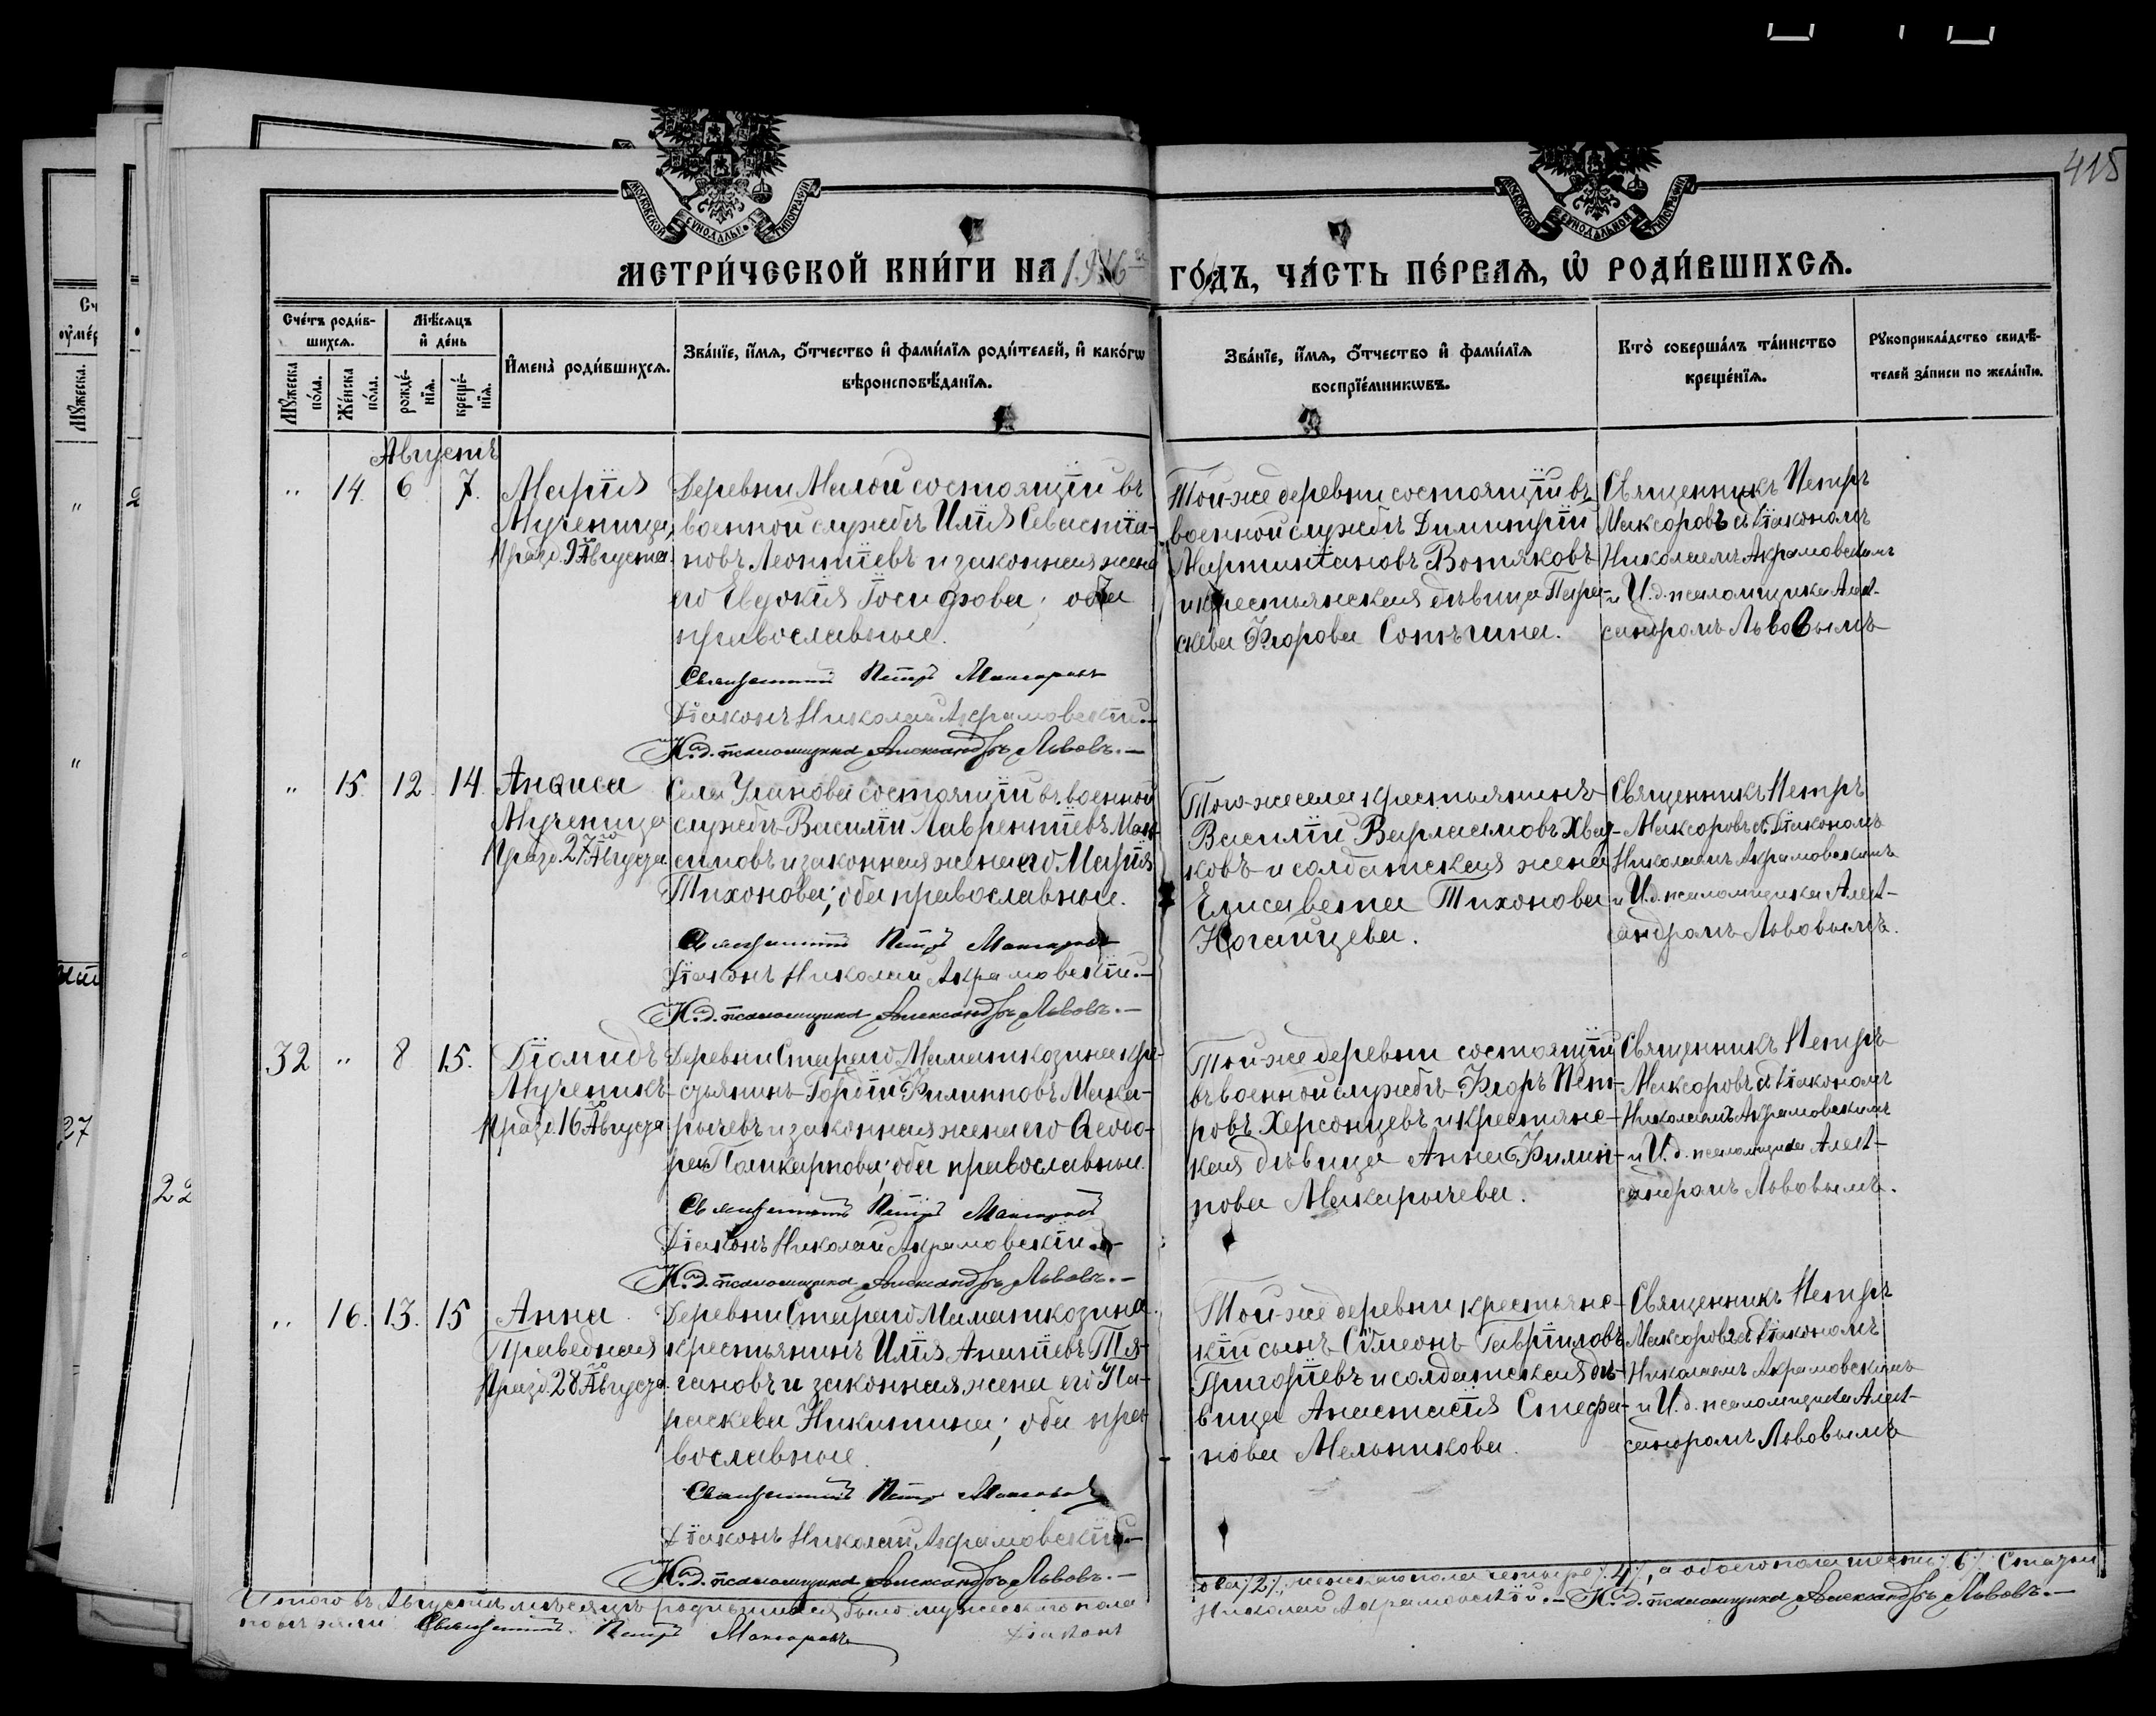 415
МОСКОВСКОЙ СУНОДАЛЬНОЙ ТИПОГРАФІИ
МОСКОВСКОЙ СУНОДАЛЬНОЙ ТИПОГРАФІИ
МЕТРИ́ЧЕСКОЙ КНИ́ГИ НА 1916 ГО́ДЪ, ЧА́СТЬ ПЕ́РВАЯ, Ѡ҆ РОДИ́ВШИХСЯ.
Сче́тъ роди́в-
шихся.
Мꙋ́жеска по́ла.
Же́нска по́ла.
Мѣ́сяцъ и҆ де́нь
рожде́-
нїя.
креще́-
нїя.
И҆мена̀ роди́вшихся.
Зва́нїе, и҆́мя, ѻ҆́тчество и҆ фами́лїя роди́телей, и҆ како́гѡ
вѣроисповѣ́данїя.
Зва́нїе, и҆́мя, ѻ҆́тчество и҆ фами́лїя
воспрїе́мникѡвъ.
Кто̀ соверша́лъ та́инство
креще́нїя.
Рꙋкоприкла́дство свидѣ́-
телей за́писи по жела́нїю.
Августъ
" 14. 6 7.
Марія
Мученица,
Празд. 9го Августа.
Деревни Малой состоящій въ
военной службѣ Илія Севастіа-
новъ Леонтіевъ и законная жена
его Евдокія Іосифова; оба
православные.
Священникъ Петръ Максоровъ
Діаконъ Николай Акрамовскій.—
И. д. псаломщика Александръ Львовъ.—
Той-же деревни состоящій въ
военной службѣ Димитрій
Мартиніановъ Вотяковъ
и крестьянская дѣвица Пара-
скева Флорова Сопѣшна.
Священникъ Петръ
Максоровъ съ діакономъ
Николаемъ Акрамовскимъ
и И. д. псаломщика Алек-
сандромъ Львовымъ
" 15. 12. 14.
Анѳиса
Мученица
Празд. 27го Августа
Села Уланова состоящій въ военной
службѣ Василій Лаврентіевъ Мак-
симовъ и законная жена его Марія
Тихонова; оба православные.
Священникъ Петръ Максоровъ
Діаконъ Николай Акрамовскій.—
И. д. псаломщика Александръ Львовъ.—
Того-же села крестьянинъ
Василій Варлаамовъ
ковъ и солдатская жена
Елисавета Тихонова
Ногайцева.
Священникъ Петръ
Максоровъ съ Діакономъ
Николаемъ Акрамовскимъ
и И. д. псаломщика Алек-
сандромъ Львовымъ.
32 " 8 15.
Діомидъ
Мученикъ
Празд. 16го Августа
Деревни Стараго Маматкозина кре-
стьянинъ Гордій Филипповъ Мака-
рычевъ и законная жена его Ѳеодо-
ра Поликарпова; оба православные.
Священникъ Петръ Максоровъ
Діаконъ Николай Акрамовскій.—
И. д. псаломщика Александръ Львовъ.—
Той-же деревни состоящій
въ военной службѣ Флоръ Пет-
ровъ Херсонцевъ и крестьянс-
кая дѣвица Анна Филип-
пова Макарычева.
Священникъ Петръ
Максоровъ съ діакономъ
Николаемъ Акрамовскимъ
и И. д. псаломщика Алек-
сандромъ Львовымъ.
" 16. 13. 15
Анна
Праведная
Празд. 28го Августа
Деревни Стараго Маматкозина
крестьянинъ Илія Ананіевъ Тя-
гановъ и законная жена его Па-
раскева Никитина; оба пра-
вославные.
Священникъ Петръ Максоровъ
Діаконъ Николай Акрамовскій.—
И. д. псаломщика Александръ Львовъ.—
Той-же деревни крестьянс-
кій сынъ Сѵмеонъ Гавріиловъ
Григоріевъ и солдатская дѣ-
вица Анастасія Стефа-
нова Мельникова.
Священникъ Петръ
Максоровъ съ діакономъ
Николаемъ Акрамовскимъ
и И. д. псаломщика Алек-
сандромъ Львовымъ
Итого въ Августѣ мѣсяцѣ родившихся было мужескаго пола
два /2/, женскаго пола четыре /4/, а обоего пола шесть /6/.
Священникъ Петръ Максоровъ Діаконъ
Николай Акрамовскій.— И. д. псаломщика Александръ Львовъ.—